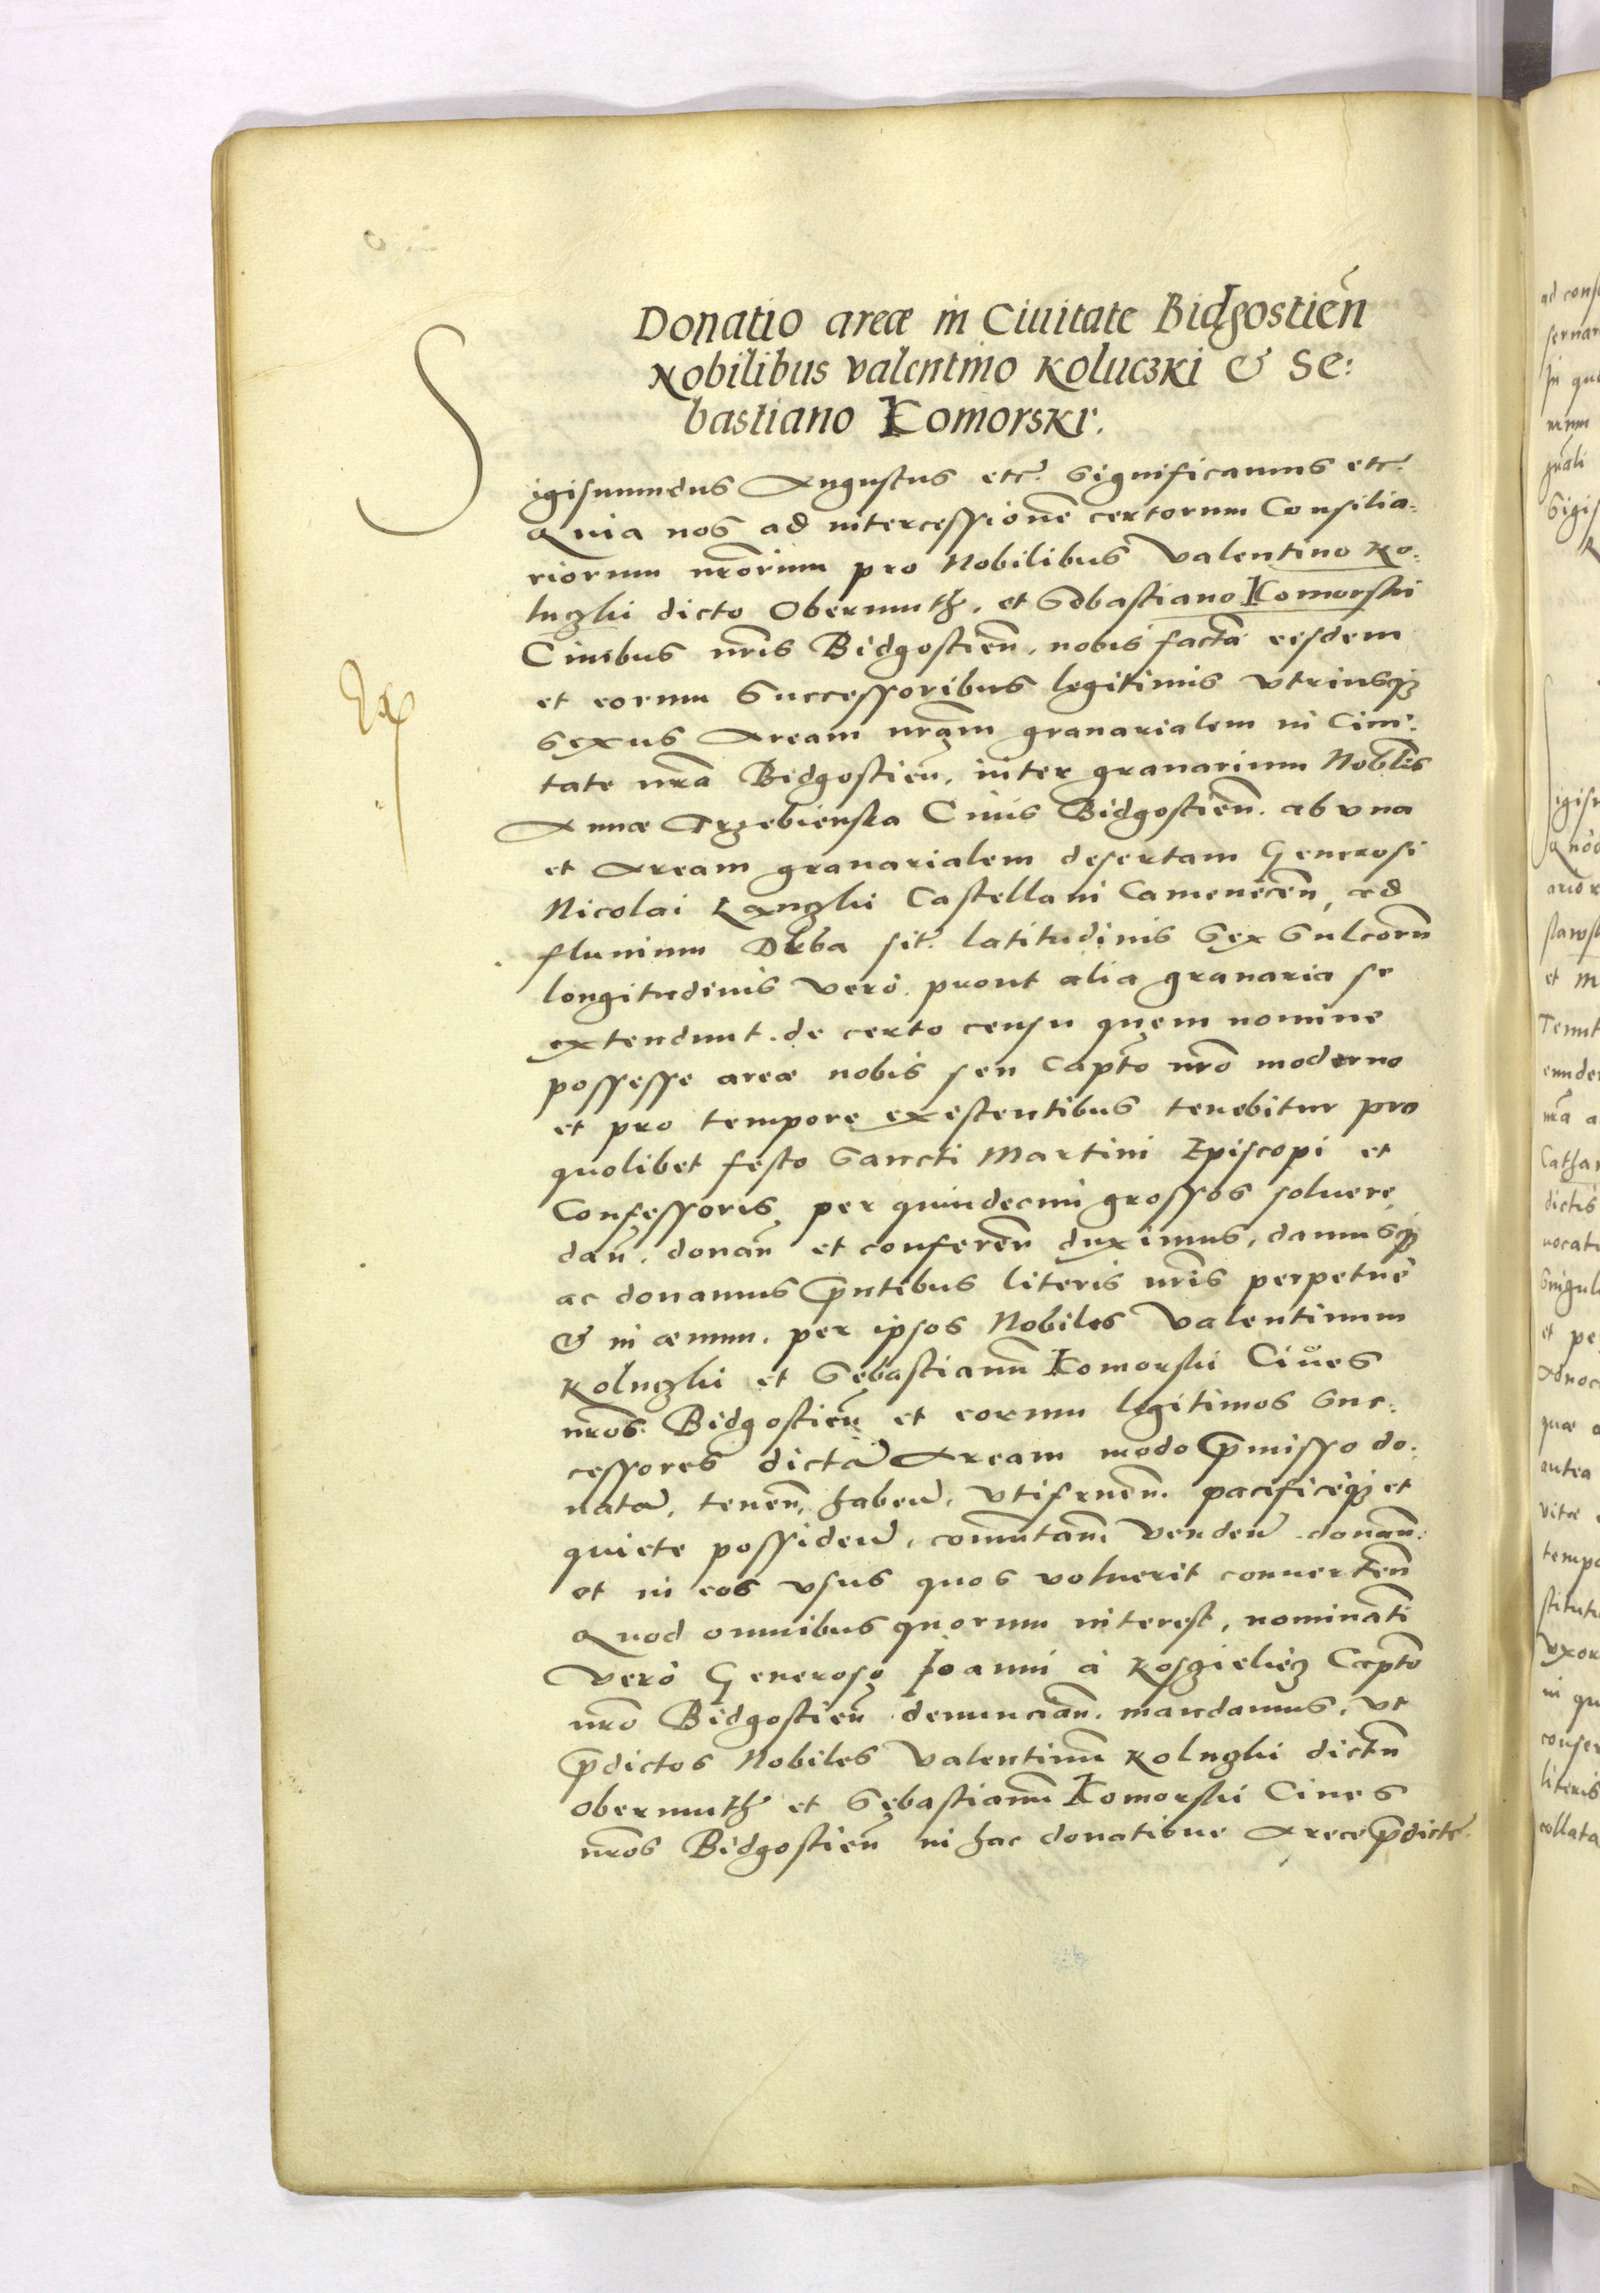 Donatio areæ in Ciuitate Bidgostien̄
Nobilibus valentino Koluczki & Se:
bastiano Komorski.
Sigismundus Augustus etc̄. Significamus etc̄.
Quia nos ad intercessionē certorum Consilia:
riorum nr̄orum pro Nobilibus Valentino Ko:
luczki dicto Obermuth, et Sebastiano Komorski
Ciuibus nr̄is Bidgostien̄, nobis factā eisdem
et eorum Successoribus legitimis vtriusq3
sexus Aream nr̄am granarialem in Ciui:
tate nr̄a Bidgostien̄, inter granarium Nobilis
Annæ Trzebienska Ciuis Bidgostien̄. ab vna
et Aream granarialem desertam Generosi
Nicolai Laczki Castellani Camenecen̄, ad
fluuium Deba sit̄. latitudinis Sex Sulcorū
longitudinis vero prout alia granaria se
extendunt. de certo censu quem nomine
possesse areæ nobis seu Capt̄o nr̄o moderno
et pro tempore existentibus tenebitur pro
quolibet festo Sancti Martini Episcopi et
Confessoris per quindecim grossos soluere,
dan̄. donan̄ et conferen̄ duximus, damusq3
ac donamus p̄ntibus literis nr̄is perpetue
& in æuum. per ipsos Nobiles Valentinum
Koluczki et Sebastianū Komorski Ciues
nr̄os Bidgostien̄ et eorum legitimos Suc:
cessores dictā Aream modo p̄misso do:
natā, tenen̄, haben̄, vtifruen̄. pacificeq3 et
quiete possiden̄, comūtan̄ venden̄ donan̄.
et in eos vsus quos voluerit conuerten̄
Quod omnibus quorum interest, nominati
vero Generoso Ioanni à Kosczielecz Capt̄o
nr̄o Bidgostien̄ denuncian̄. mandamus, vt
p̄dictos Nobiles Valentinū Koluczki dictū
Obermuth et Sebastianū Komorski Ciues
nr̄os Bidgostien̄ in hac donatione Areæ p̄dictæ